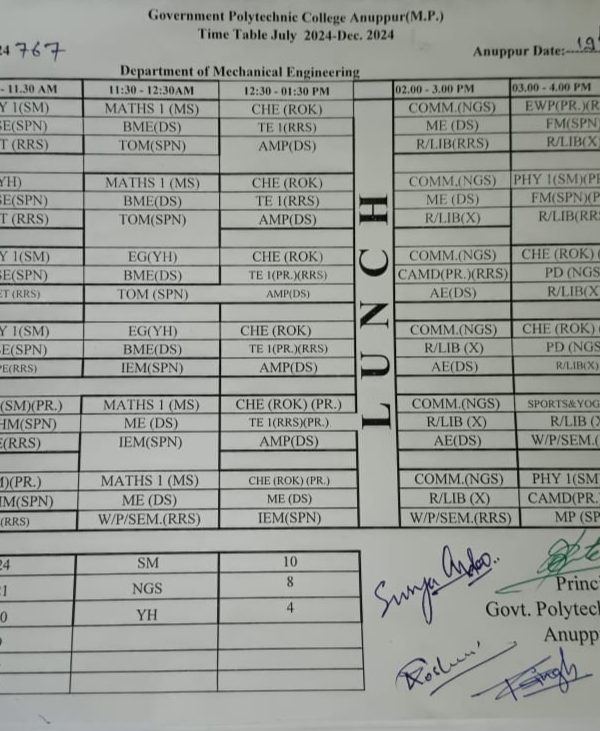 Government Polytechnic College Anuppur(M.P.)
Time Table July 2024-Dec. 2024
24 767
Anuppur Date:
Department of Mechanical Engineering
- 11.30 AM 11:30 - 12:30AM 12:30 - 01:30 PM 02.00 - 3.00 PM 03.00 - 4.00 PM
Y 1(SM) MATHS 1 (MS) CHE (ROK) COMM.(NGS) EWP(PR.)(R
SE(SPN) BME(DS) TE 1(RRS) ME (DS) FM(SPN)
T (RRS) TOM(SPN) AMP(DS) R/LIB(RRS) R/LIB(X)
YH) MATHS 1 (MS) CHE (ROK) COMM.(NGS) PHY 1(SM)(P
SE(SPN) BME(DS) TE 1(RRS) ME (DS) FM(SPN)(P
T (RRS) TOM(SPN) AMP(DS) R/LIB(X) R/LIB(RR
LUNCH
Y 1(SM) EG(YH) CHE (ROK) COMM.(NGS) CHE (ROK) (
SE(SPN) BME(DS) TE 1(PR.)(RRS) CAMD(PR.)(RRS) PD (NGS
ET (RRS) TOM (SPN) AMP(DS) AE(DS) R/LIB(X
Y 1(SM) EG(YH) CHE (ROK) COMM.(NGS) CHE (ROK) (
SE(SPN) BME(DS) TE 1(PR.)(RRS) R/LIB (X) PD (NGS
PE(RRS) IEM(SPN) AMP(DS) AE(DS) R/LIB(X)
(SM)(PR.) MATHS 1 (MS) CHE (ROK) (PR.) COMM.(NGS) SPORTS&YOG
HM(SPN) ME (DS) TE 1(RRS)(PR.) R/LIB (X) R/LIB (X
E(RRS) IEM(SPN) AMP(DS) AE(DS) W/P/SEM.(
)(PR.) MATHS 1 (MS) CHE (ROK) (PR.) COMM.(NGS) PHY 1(SM
IM(SPN) ME (DS) ME (DS) R/LIB (X) CAMD(PR.
(RRS) W/P/SEM.(RRS) IEM(SPN) W/P/SEM.(RRS) MP (SP
24 SM 10
21 NGS 8
0 YH 4
Princi
Govt. Polytech
Anupp